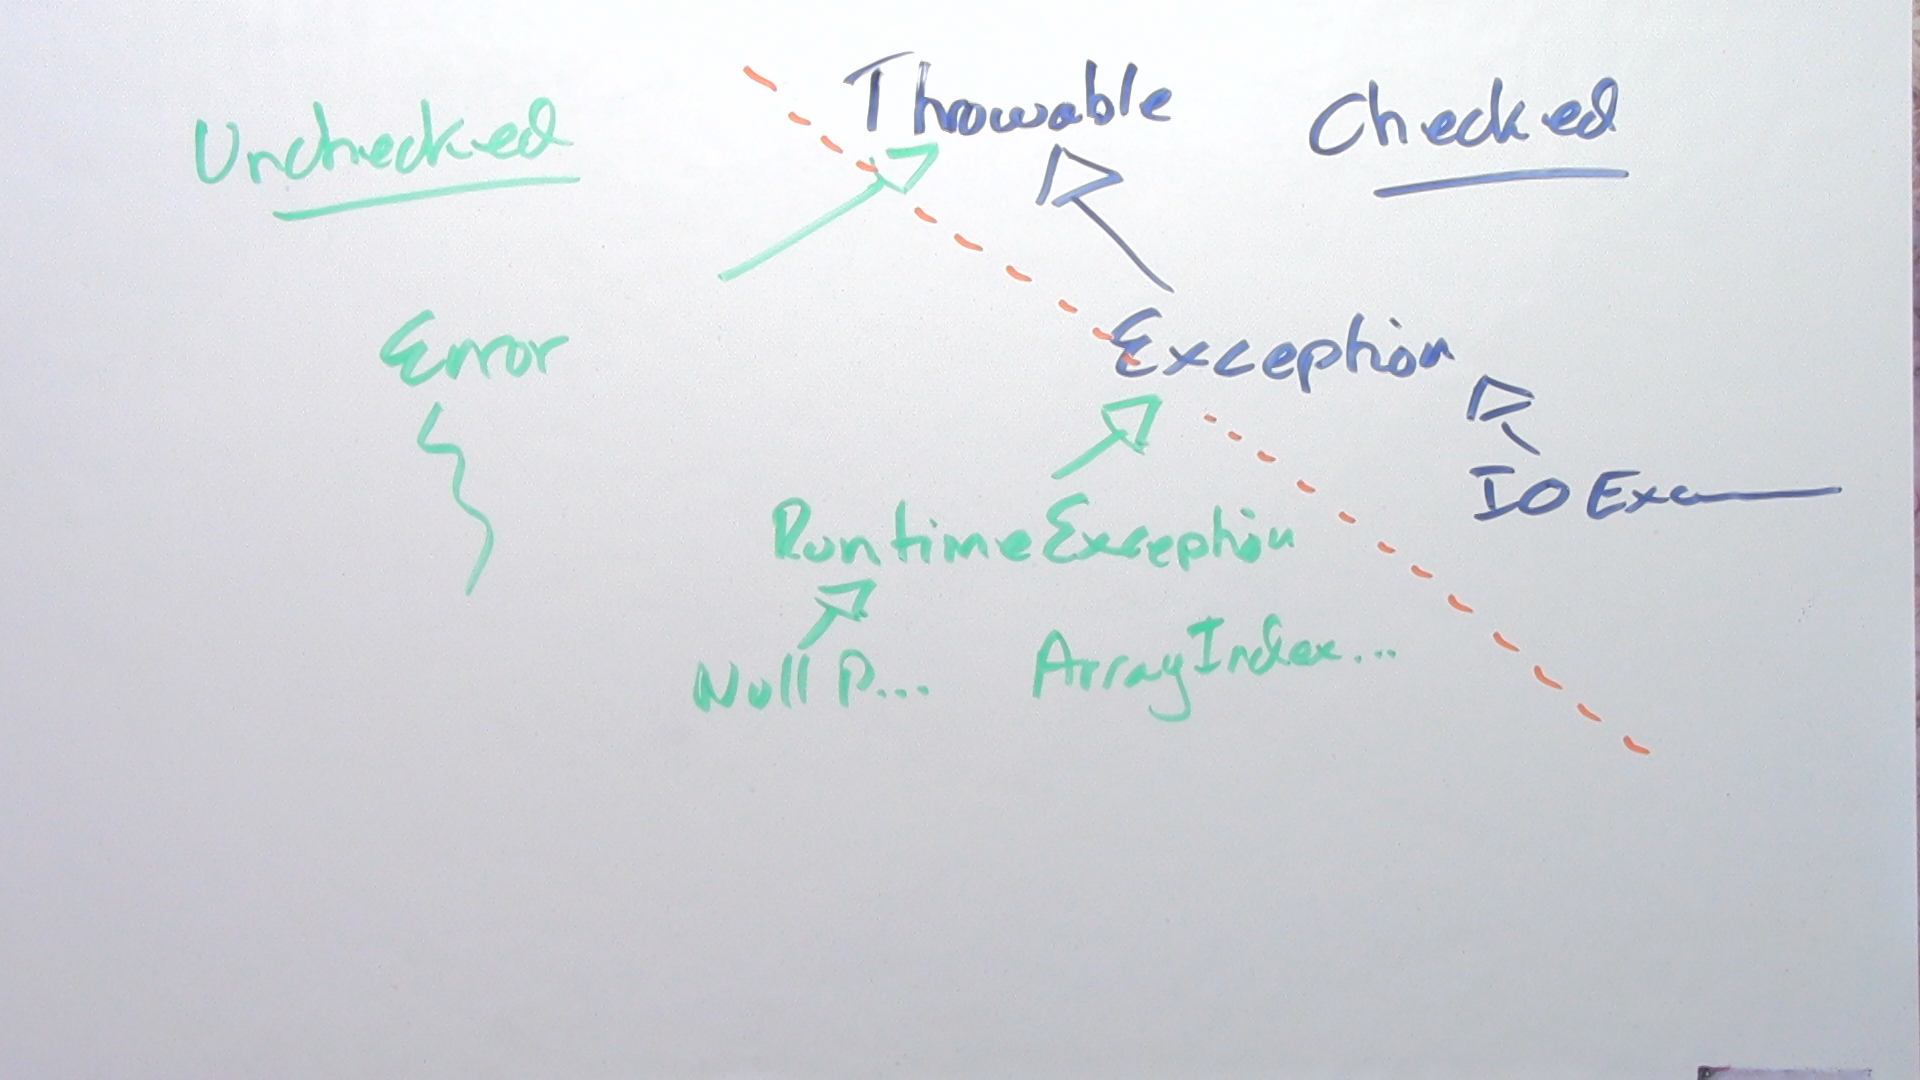 Unchecked Throwable Checked
Error Exception
IO Exc
RuntimeException
NullP... ArrayIndex...